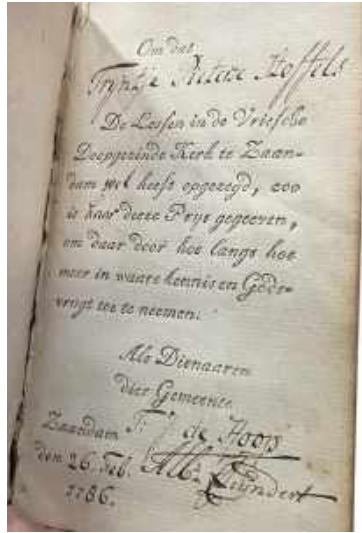 Om dat
Tryntje Pieters Hoffels
De Lessen in de Vriesche
Doopgezinde Kerk te Zaan-
dam wel heeft opgezegd, zoo
is haar deeze Prys gegeeven,
om daar door hoe langs hoe
meer in waare kennis en Gods-
vrugt toe te neemen.
Als Dienaaren
dier Gemeente
Zaandam
de Hoop
den 26. Feb.
1786.